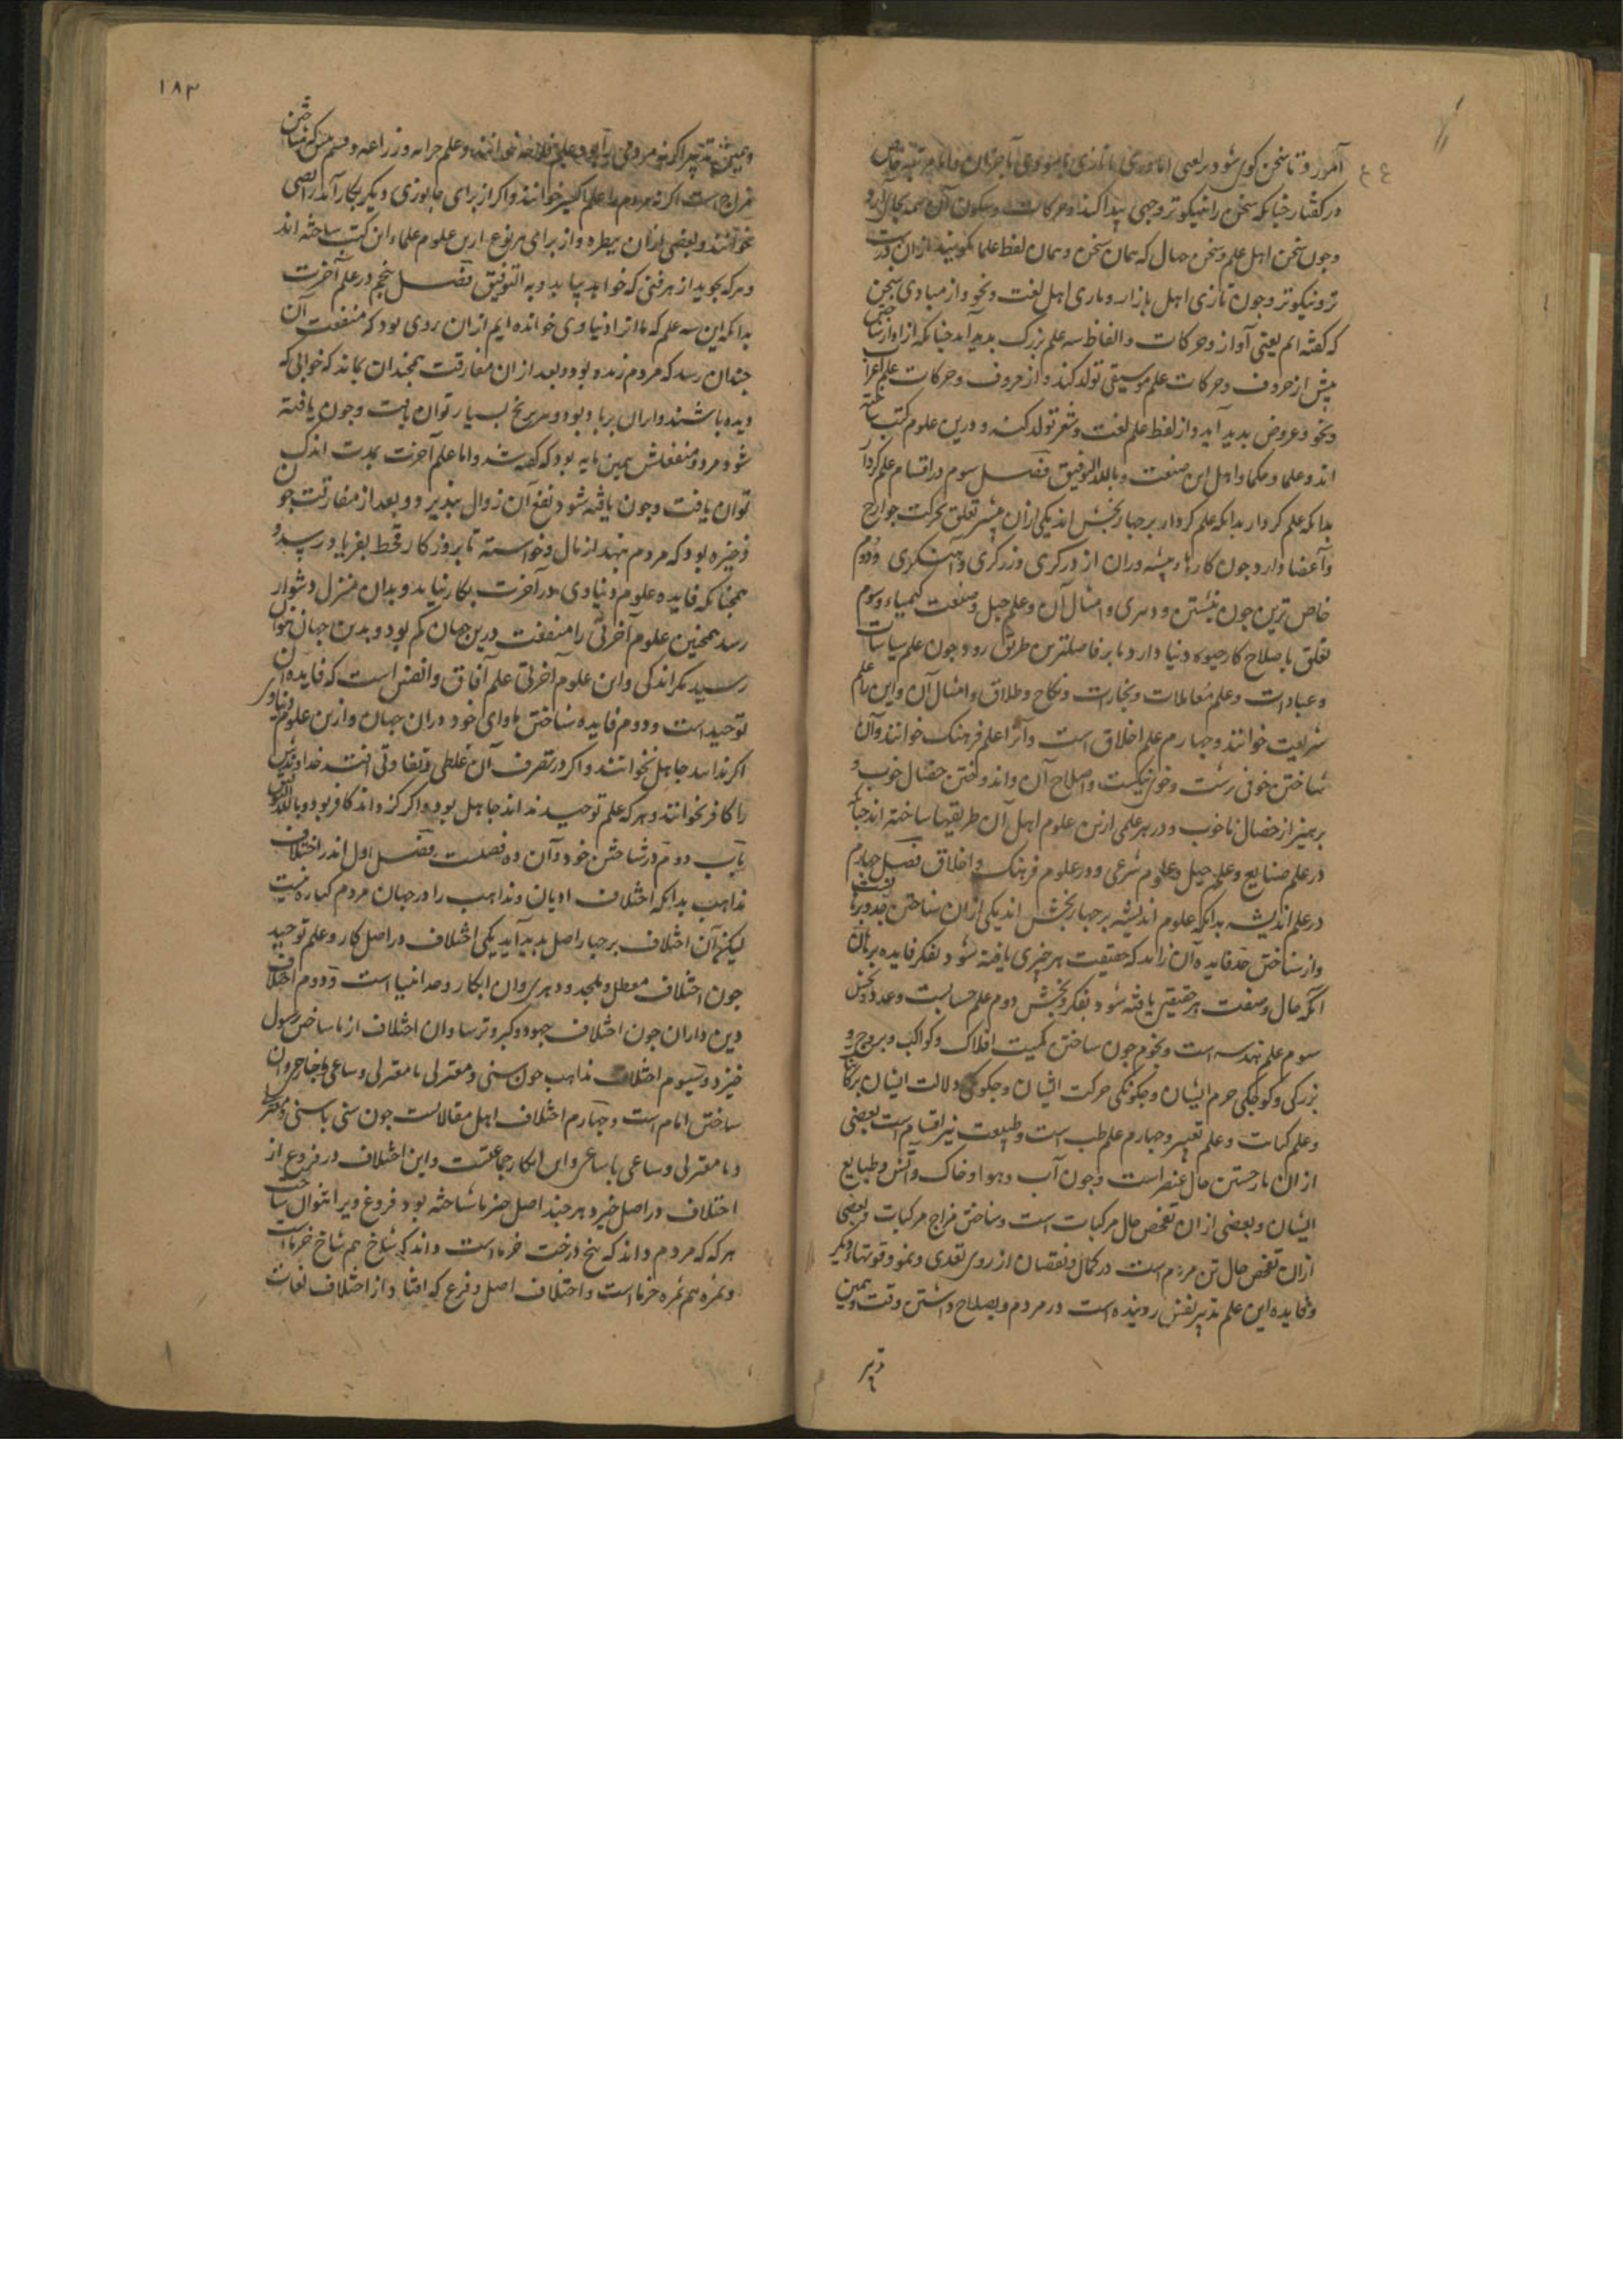 آموزد تا سخن گوی شود
در گفتار چنانکه سخن را نیکوتر وجهی پیدا کند و حرکات و سکون آن همه بجای آرد
و چون سخن اهل علم و سخن جهال که همان سخن و همان لفظ علما گویند ازان درست
تر و نیکوتر و چون تازی اهل بازار و تازی اهل لغت و نحو و از مبادی سخن
که گفته ایم یعنی آواز و حرکات و الفاظ سه علم بزرگ بدید آید چنانکه از آواز شناختن
پیش از حروف و حرکات علم موسیقی تولد کند و از حروف و حرکات علم اعراب
و نحو و عروض بدید آید و از لفظ علم لغت و شعر تولد کند و درین علوم کتب ساخته
اند و علما و حکما و اهل این صنعت و بالله التوفیق فصل سوم در اقسام علم کردار
بدانکه علم کردار بدانکه علم کردار بر چهار بخش اند یکی ازان بیشتر تعلق بحرکت جوارح
و اعضا دارد چون کارهاء پیشه وران از درگری و زرگری و آهنگری و دوم
خاص ترین چون نبشتن و دبیری و امثال آن و علم حیل و صنعت کیمیاء و سوم
تعلق باصلاح کار حیوه دنیا دارد تا بر فاضلترین طریق رود چون علم سیاسات
و عبادات و علم معاملات و تجارات و نکاح و طلاق و امثال آن و این را علم
شریعت خوانند و چهارم علم اخلاق است و آنرا علم فرهنگ خوانند و آن
شناختن خوی زشت و خوی نیکست و اصلاح آن و اندوختن خصال خوب و
پرهیز از خصال ناخوب و در هر علمی ازین علوم اهل آن طریقها ساخته اند چنانکه
در علم صنایع و علم حیل و علوم شرعی و در علوم فرهنگ و اخلاق فصل چهارم
در علم اندیشه بدانکه علوم اندیشه بر چهار بخش اند یکی ازان شناختن حد و برهانست
و از شناختن حد فایده آن زاید که حقیقت هر چیزی یافته شود بفکر و فایده برهان
آنکه حال و صفت هر حقیقتی یافته شود بفکر و بخش دوم علم حسابست و عدد و بخش
سوم علم هندسه است و نجوم چون شناختن کمیت افلاک و کواکب و بروج و
بزرگی و کوچکی جرم ایشان و چگونگی حرکت ایشان و چگونگی دلالت ایشان بر کائنات
و علم کیات و علم تعبیر و چهارم علم طب است و طبیعت نیز اقسام است بعضی
ازان باز جستن حال عنصر است و چون آب و هوا و خاک و آتش و طبایع
ایشان و بعضی ازان تفحص حال مرکبات است و شناختن مزاج مرکبات و بعضی
ازان تفحص حال تن مردم است در کمال و نقصان از روی تغدی و نمو و قوتهاء دیگر
و فایده این علم تدبیر نفس روینده است در مردم و بصلاح داشتن وقت و همین
تدبیر
١٨٣
و همین تدبیر اگر نه مردمی را بود علم فلاحه خوانند و علم حراثه و زراعه و قسم شناختن
مزاج است اگر نه مردم را علم اکسیر خوانند و اگر از برای جانوری دیگر بکار آید رایضی
خوانند و بعضی ازان بیطره و از برای هر نوع ازین علوم علماء این کتب ساخته اند
و هر که بجوید از هر فنی که خواهد بیابد و به التوفیق فصل پنجم در علم آخرت
بدانکه این سه علم که ما انرا دنیاوی خوانده ایم ازان روی بود که منفعت آن
چندان رسد که مردم زنده بود و بعد از ان مفارقت همچندان بماند که خوابی که
دیده باشند و این بر باد بود و هر به رنج بسیار توان یافت و چون یافته
شود مزد و منفعتش همین مایه بود که گفته شد و اما علم آخرت بمدت اندک
توان یافت و چون یافته شود نفع آن زوال نپذیرد و بعد از مفارقت چون
ذخیره بود که مردم بنهد از مال و خواسته تا بروزگار قحط بفریاد رسد و
همچنانکه فایده علوم دنیاوی در آخرت بکار نیاید و بدان منزل دشوار
رسد همچنین علوم آخرتی را منفعت درین جهان کم بود و بدین جهان نتوان
رسید مگر اندکی و ان علوم آخرتی علم آفاق و انفس است که فایده آن
توحید است و دوم فایده شناختن ماوای خود دران جهان و ازین علوم دنیاوی
اگر نداند جاهل نخوانند و اگر در تصرف آن غلطی و تفاوتی افتد خداوندش
را کافر نخوانند و هر که علم توحید نداند جاهل بود و اگر کژ داند کافر بود و بالله التوفیق
باب دوم در شناختن خود و آن ده فصلست فصل اول اندر اختلاف
مذاهب بدانکه اختلاف ادیان و مذاهب را در جهان مردم کناره نیست
لیکن آن اختلاف بر چهار اصل بدید آید یکی اختلاف در اصل کار و علم توحید
چون اختلاف معطل و ملحد و دهری و ان انکار وحدانیا است و دوم اختلاف
دین داران چون اختلاف جهود و گبر و ترسا و ان اختلاف از ناشناختن رسول
خیزد و سیوم اختلاف مذاهب چون سنی و معتزلی با معتزلی و ساعی با خارجی و ان
شناختن امام است و چهارم اختلاف اهل مقالاتست چون سنی با سنی و معتزلی
و با معتزلی و ساعی با ساعی و این انکار جماعتست و این اختلاف در فروع از
اختلاف در اصل خیزد هر چند اصل چیز ناشناخته بود فروع ویرا نتوان شناخت
هر که که مردم داند که بیخ درخت خرماست داند که شاخ هم شاخ خرماست
و ثمره هم ثمره خرماست و اختلاف اصل و فرع که افتاد از اختلاف لغات